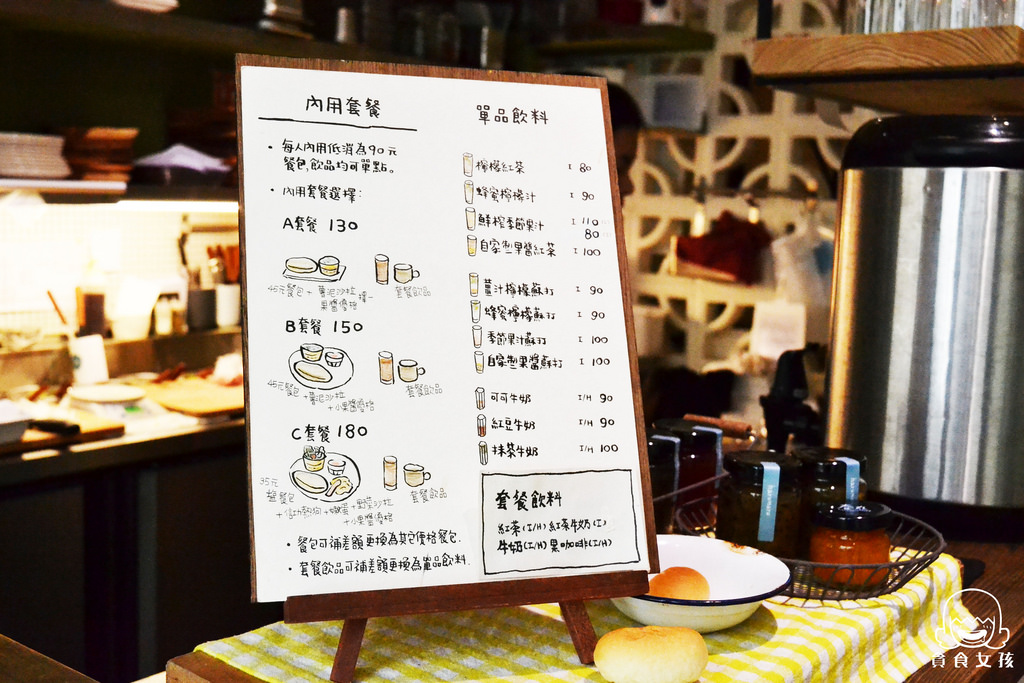 內用套餐
• 每人內用低消為90元
餐包,飲品均可單點。
• 內用套餐選擇:
A套餐 130
45元餐包 + 薯泥沙拉
果醬優格
擇一
套餐飲品
B套餐 150
45元餐包
+ 薯泥沙拉
+ 小果醬優格
套餐飲品
C套餐 180
35元
餐包
+ 嫩蛋 + 野菜沙拉
+ 小果醬優格
套餐飲品
• 餐包可補差額更換為其它價格餐包.
• 套餐飲品可補差額更換為單品飲料.
單品飲料
檸檬紅茶 I 80
蜂蜜檸檬汁 I 90
鮮榨季節果汁 I 110
80
自家製果醬紅茶 I 100
薑汁檸檬蘇打 I 90
蜂蜜檸檬蘇打 I 90
季節果汁蘇打 I 100
自家製果醬蘇打 I 100
可可牛奶 I/H 90
紅豆牛奶 I/H 90
抹茶牛奶 I/H 100
套餐飲料
紅茶(I/H) 紅茶牛奶(I)
牛奶(I/H) 黑咖啡(I/H)
貪食女孩